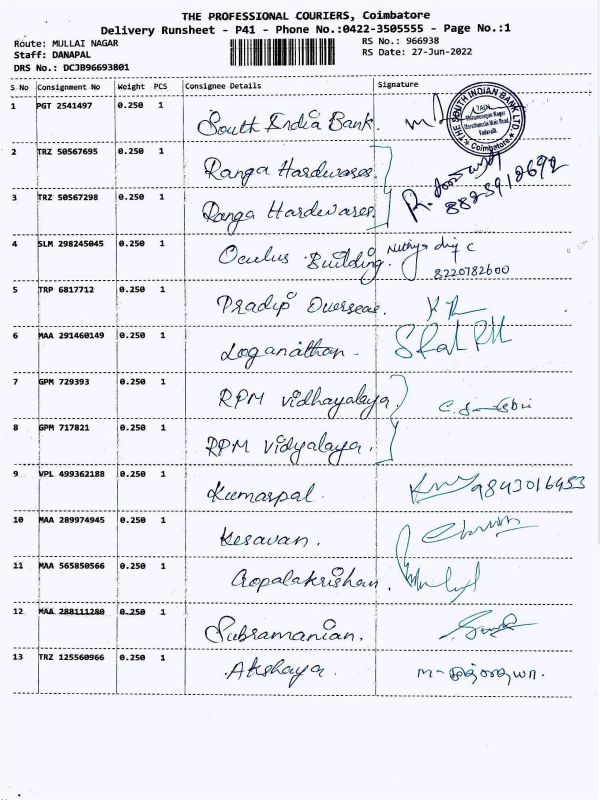 THE PROFESSIONAL COURIERS, Coimbatore
Delivery Runsheet - P41 - Phone No.:0422-3505555 - Page No.:1
Route: MULLAI NAGAR RS No.: 966938
Staff: DANAPAL RS Date: 27-Jun-2022
DRS No.: DCJB96693801
S No Consignment No Weight PCS Consignee Details Signature
1 PGT 2541497 0.250 1 South India Bank.
THE SOUTH INDIAN BANK LTD. Coimbatore
2 TRZ 50567695 0.250 1 Ranga Hardwares.
3 TRZ 50567298 0.250 1 Ranga Hardwares. 8823912692
4 SLM 298245045 0.250 1 Oculus Building.
8220782600
5 TRP 6817712 0.250 1 Pradip Overseas.
6 MAA 291460149 0.250 1 Loganathan.
7 GPM 729393 0.250 1 RPM vidhayalaya
8 GPM 717821 0.250 1 RPM vidyalaya.
9 VPL 499362188 0.250 1 Kumarpal. 9843016453
10 MAA 289974945 0.250 1 Kesavan.
11 MAA 565850566 0.250 1 Gopalakrishan.
12 MAA 288111280 0.250 1 Subramanian.
13 TRZ 125560966 0.250 1 Akshaya.